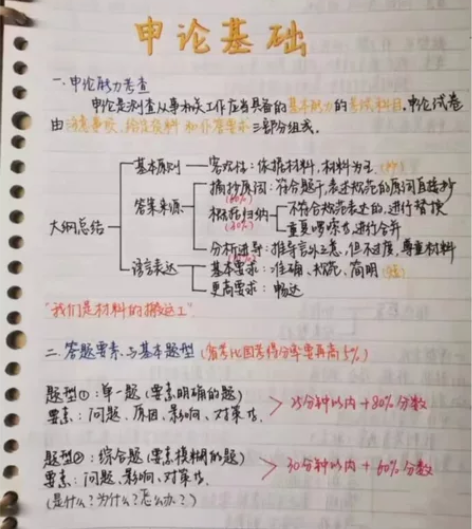 申论基础
一.申论能力考查
申论是测查从事机关工作应当具备的基本能力的考试科目.申论试卷
由注意事项、给定资料和作答要求三部分组成.
大纲总结
基本原则 — 客观性:依据材料,材料为主.
答案来源
摘抄原词:符合题干,表述规范的原词直接抄
概括归纳
不符合规范表述的,进行替换
重复啰嗦的,进行合并
分析推导:推导言外之意,但不过度,尊重材料
语言表达
基本要求:准确、规范、简明
更高要求:畅达
"我们是材料的搬运工"
二.答题要素与基本题型(省考比国考得分率要再高5%)
题型①:单一题(要素明确的题)
要素:问题、原因、影响、对策等.
> 25分钟以内+80%分数
题型②:综合题(要素模糊的题)
要素:问题、影响、对策等.
(是什么?为什么?怎么办?)
> 30分钟以内+60%分数